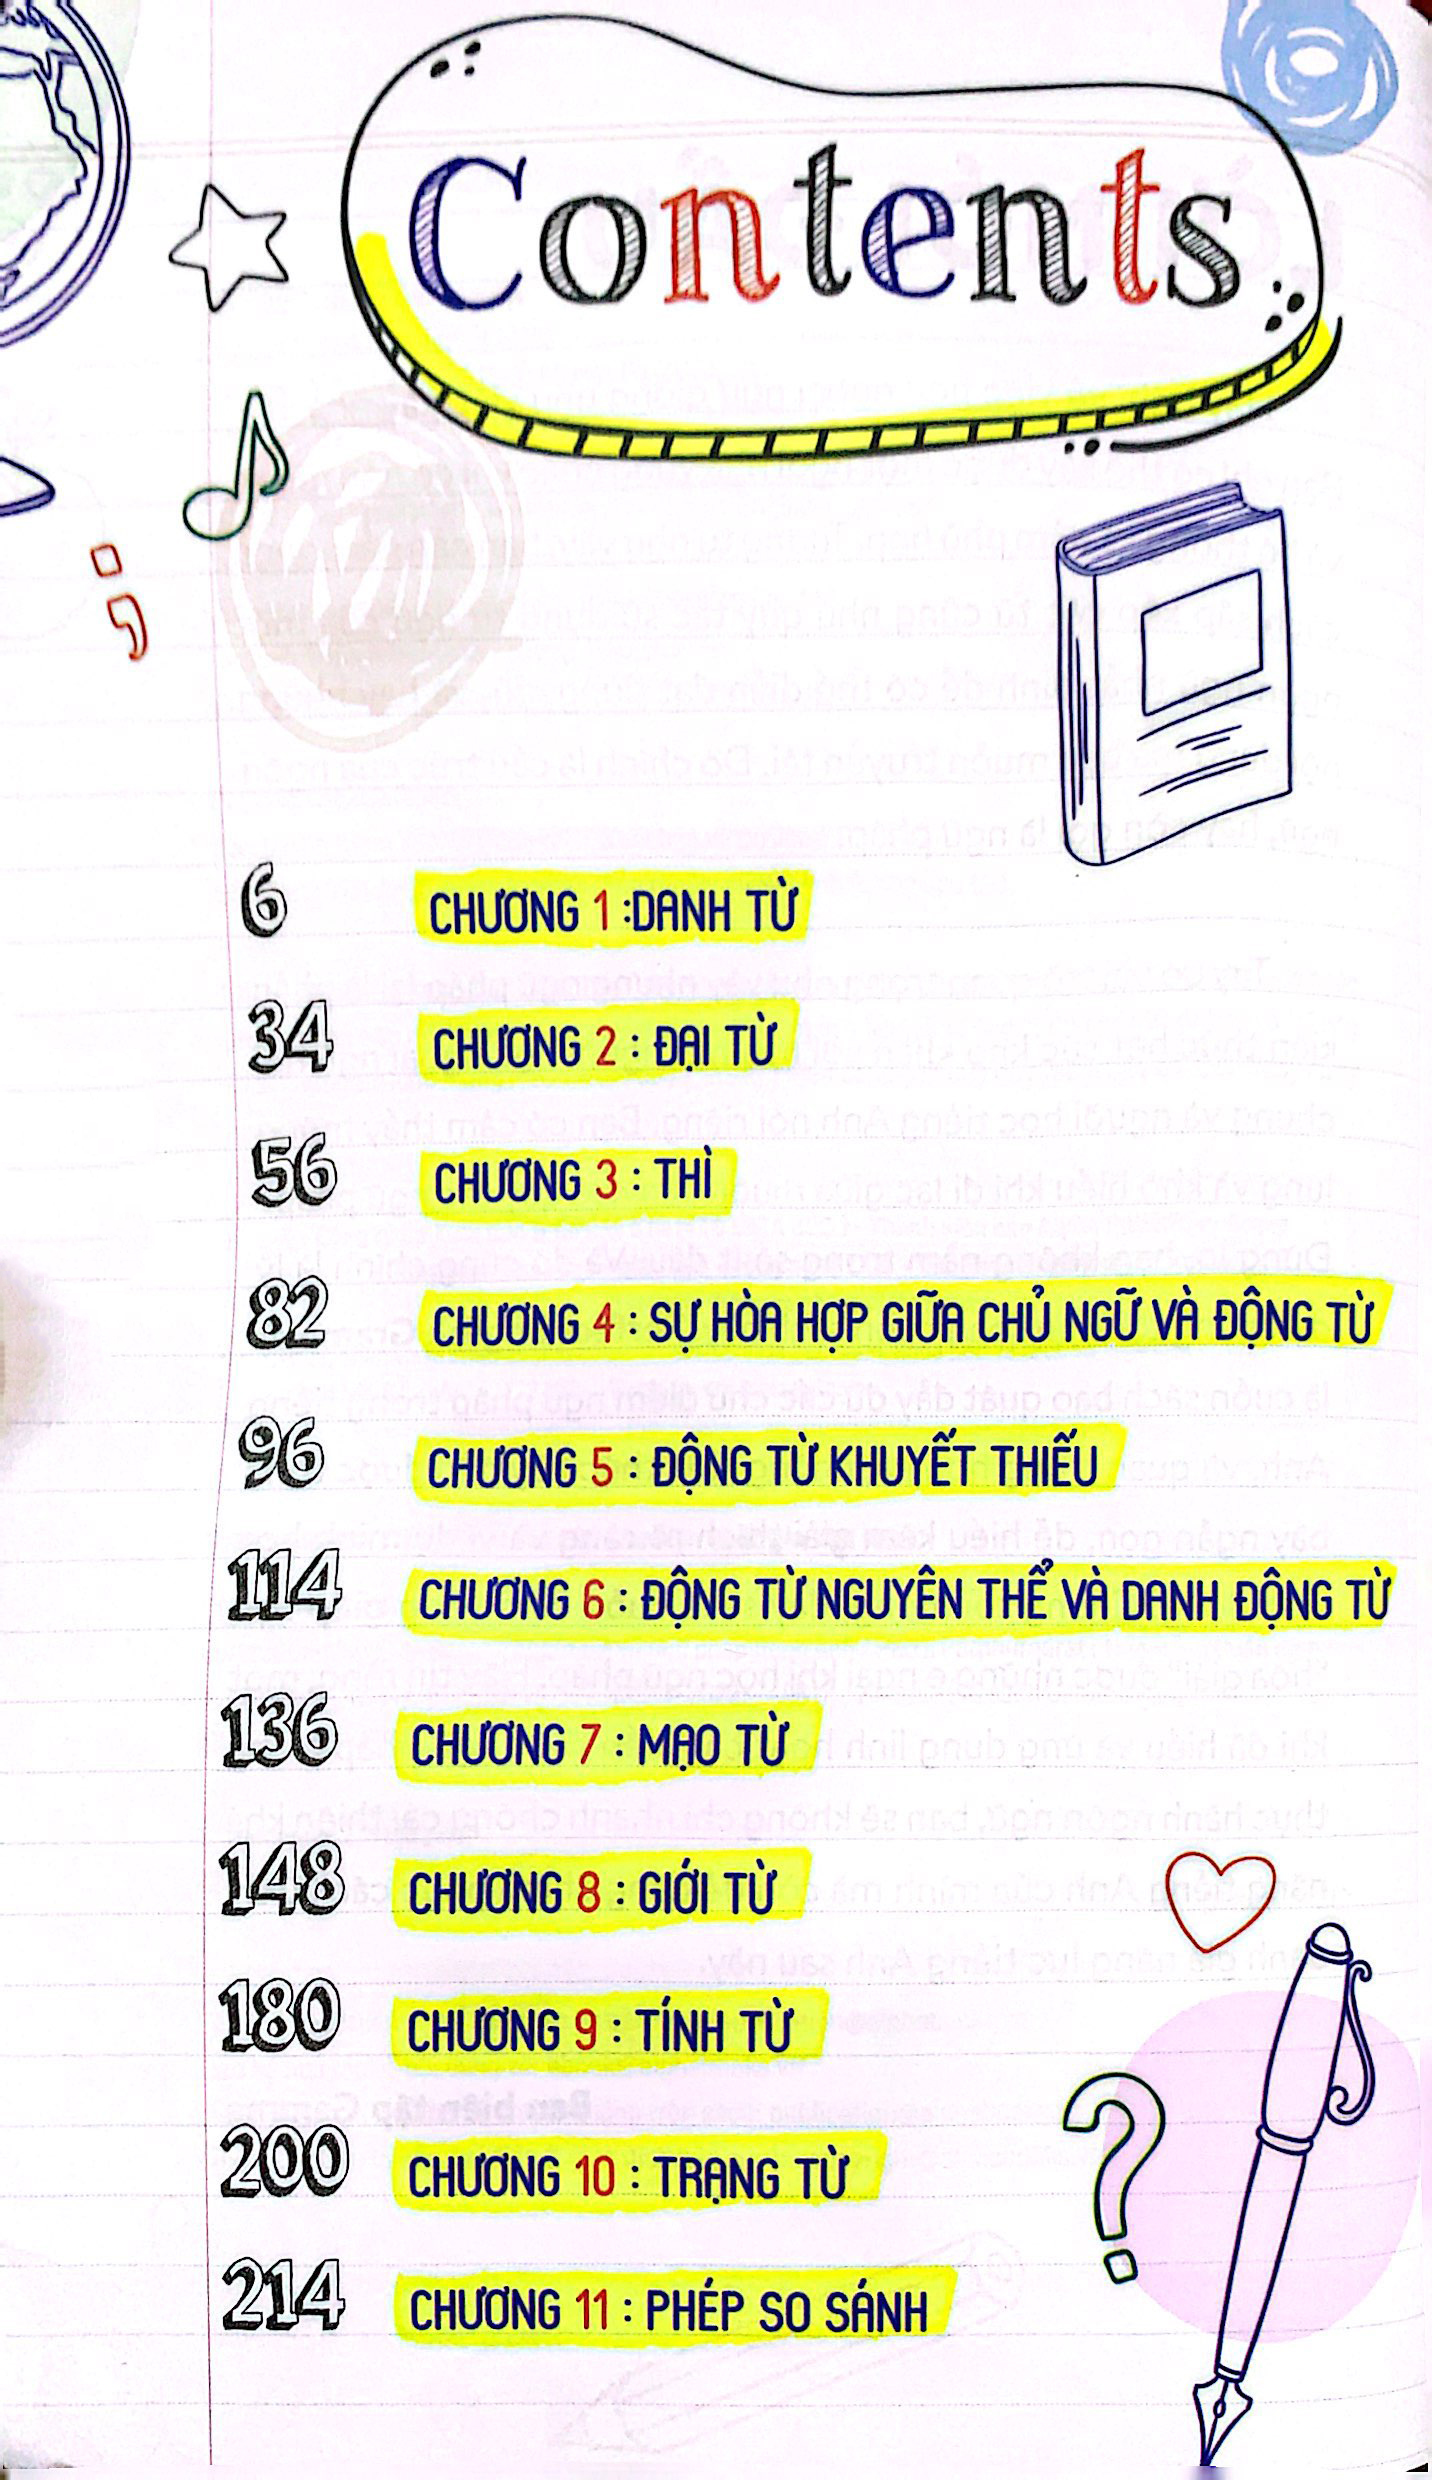 Contents
6 CHƯƠNG 1 :DANH TỪ
34 CHƯƠNG 2 : ĐẠI TỪ
56 CHƯƠNG 3 : THÌ
82 CHƯƠNG 4 : SỰ HÒA HỢP GIỮA CHỦ NGỮ VÀ ĐỘNG TỪ
96 CHƯƠNG 5 : ĐỘNG TỪ KHUYẾT THIẾU
114 CHƯƠNG 6 : ĐỘNG TỪ NGUYÊN THỂ VÀ DANH ĐỘNG TỪ
136 CHƯƠNG 7 : MẠO TỪ
148 CHƯƠNG 8 : GIỚI TỪ
180 CHƯƠNG 9 : TÍNH TỪ
200 CHƯƠNG 10 : TRẠNG TỪ
214 CHƯƠNG 11 : PHÉP SO SÁNH